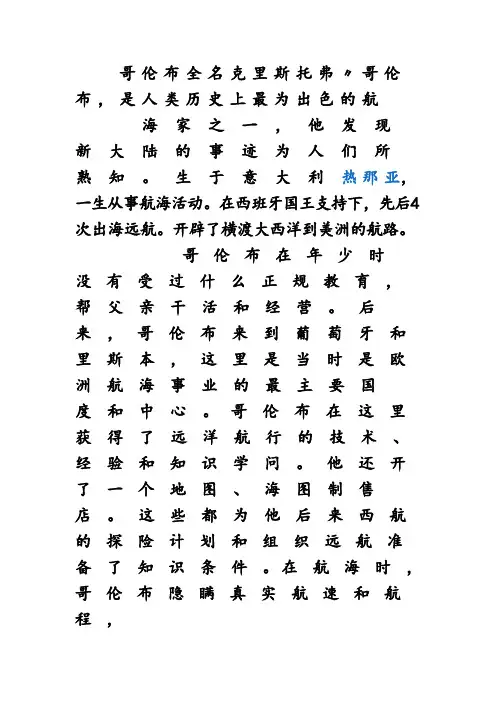 哥伦布全名克里斯托弗〃哥伦
布，是人类历史上最为出色的航
海家之一，他发现
新大陆的事迹为人们所
熟知。生于意大利热那亚，
一生从事航海活动。在西班牙国王支持下，先后4
次出海远航。开辟了横渡大西洋到美洲的航路。
哥伦布在年少时
没有受过什么正规教育，
帮父亲干活和经营。后
来，哥伦布来到葡萄牙和
里斯本，这里是当时是欧
洲航海事业的最主要国
度和中心。哥伦布在这里
获得了远洋航行的技术、
经验和知识学问。他还开
了一个地图、海图制售
店。这些都为他后来西航
的探险计划和组织远航准
备了知识条件。在航海时，
哥伦布隐瞒真实航速和航
程，